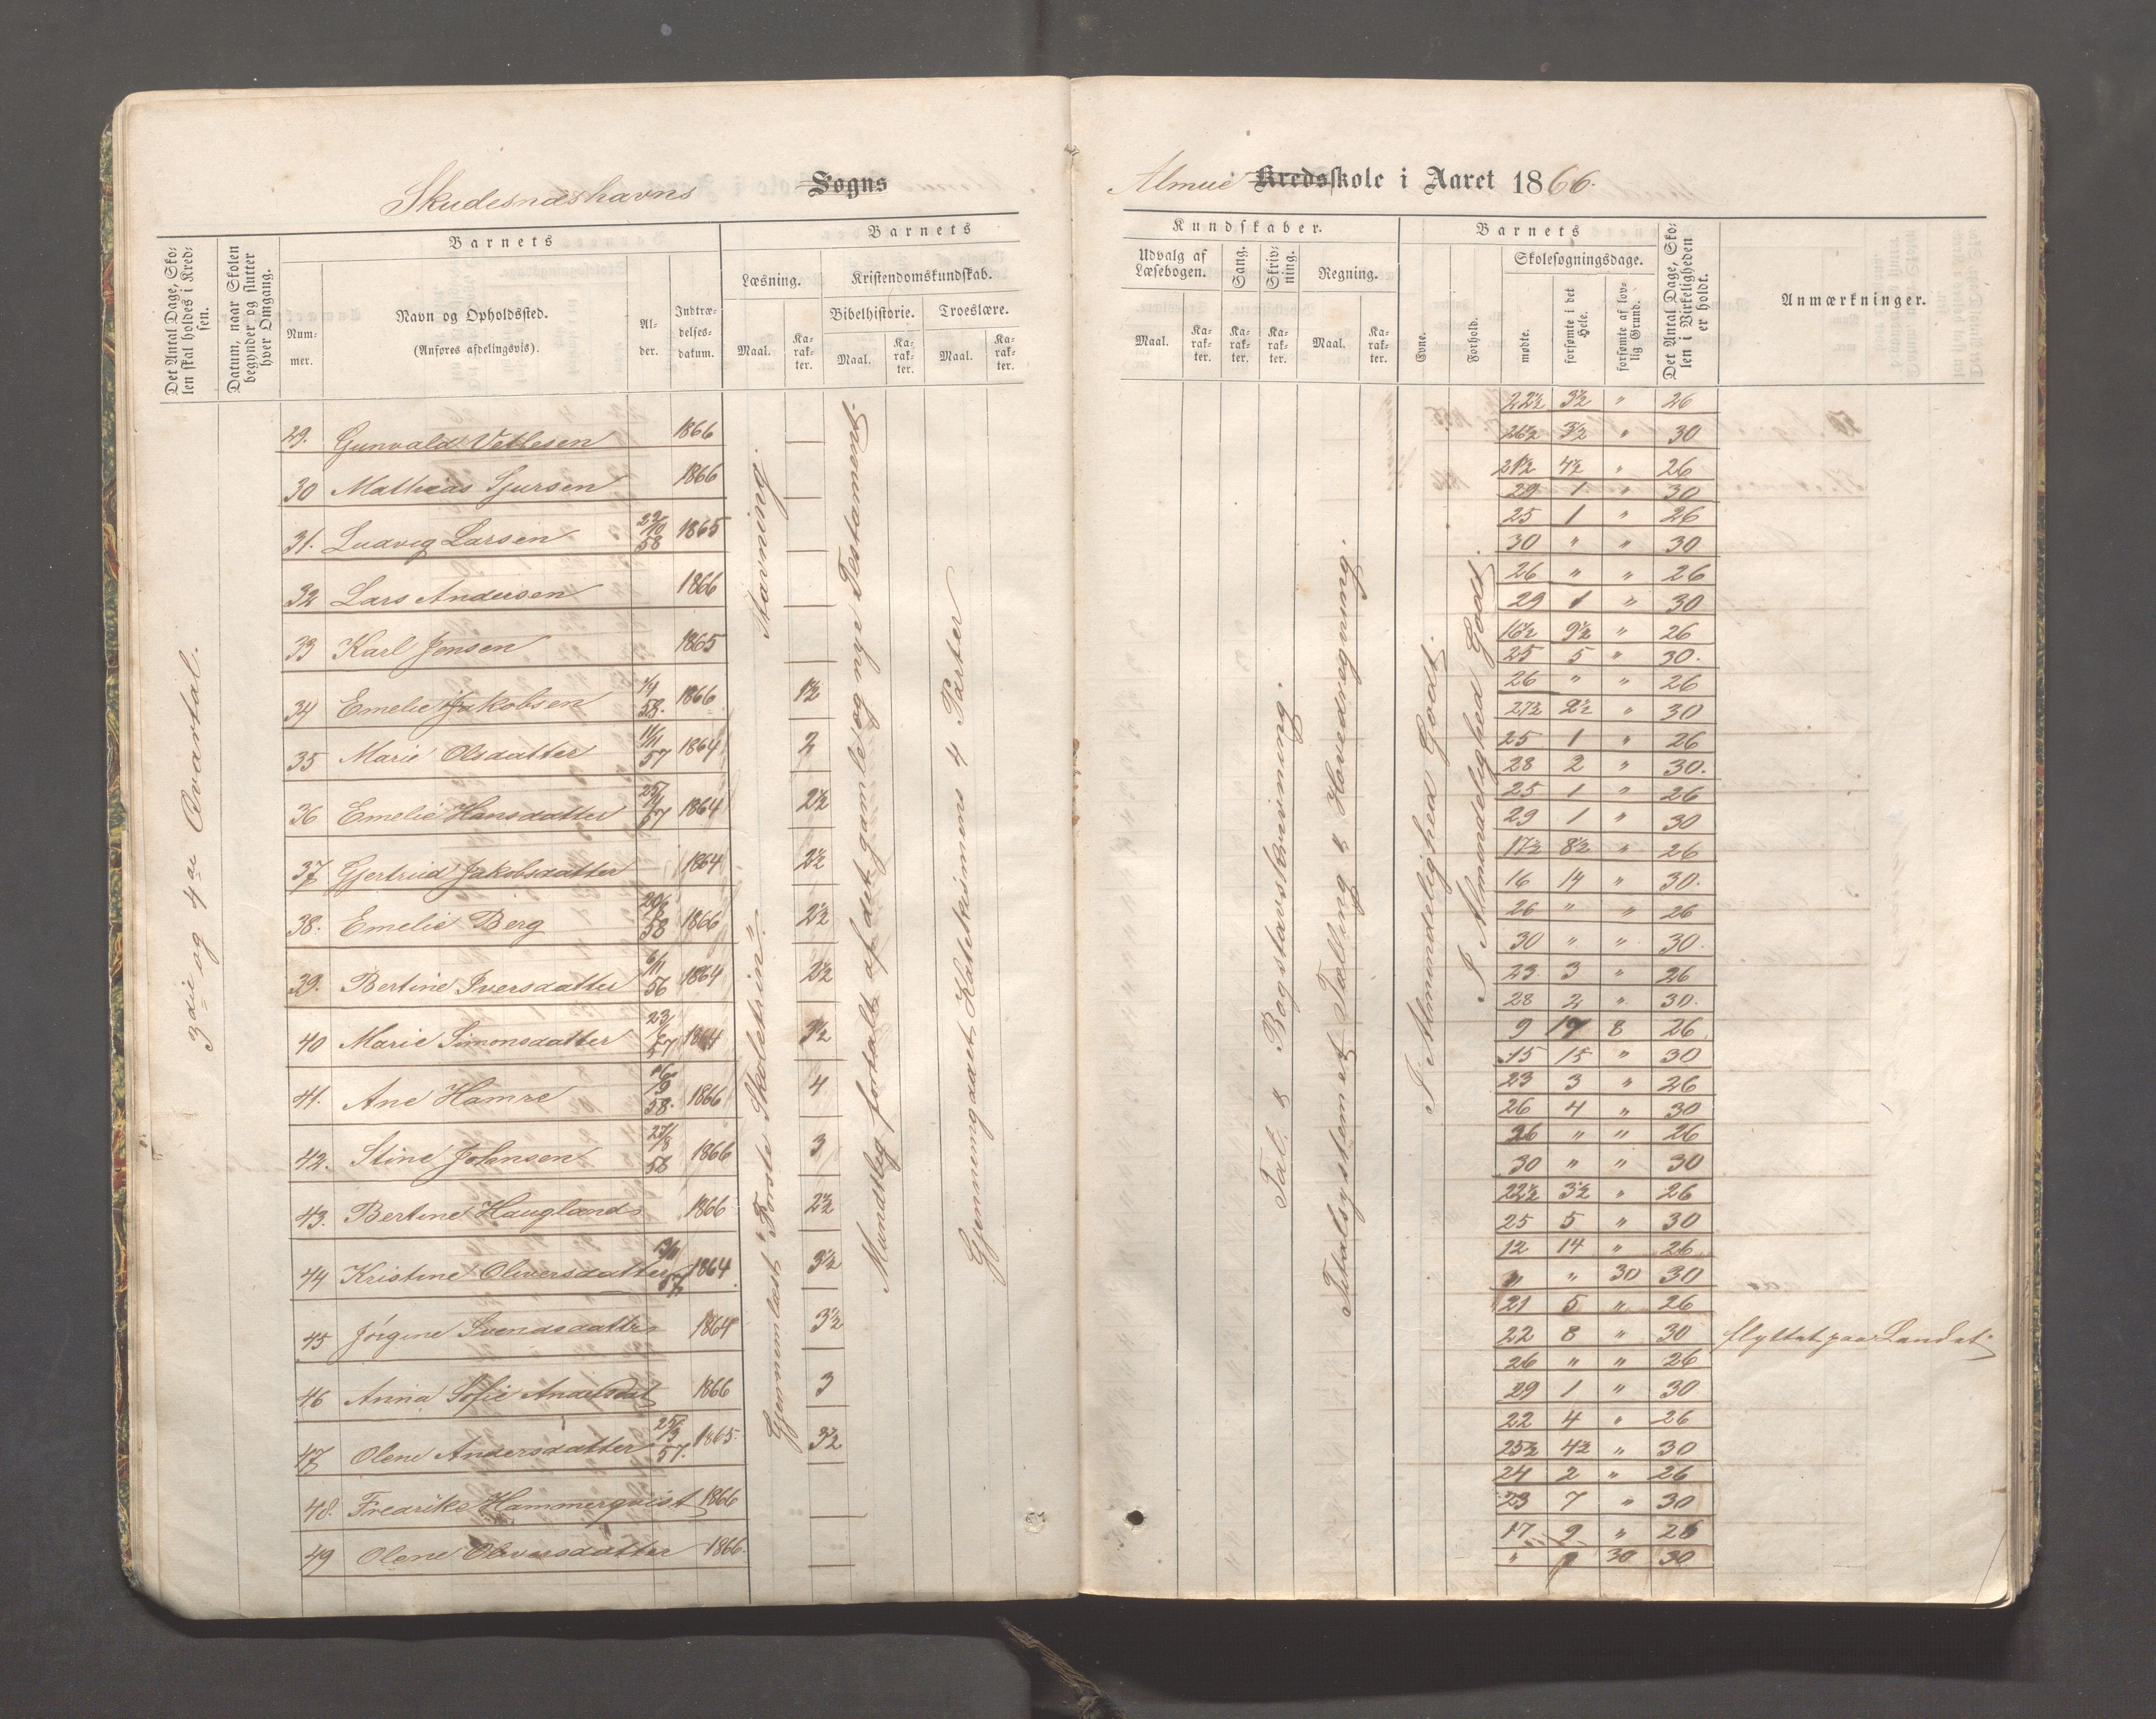 Skudesnæshavns Sogns
Almue Kredsskole i Aaret 1866.
Det Antal Dage, Skolen skal holdes i Kredsen.
Datum, naar Skolen begynder og slutter hver Omgang.
Barnets
Nummer.
Navn og Opholdssted.
(Anføres afdelingsvis).
Alder.
Indtrædelsesdatum.
Barnets
Læsning.
Maal.
Karakter.
Kristendomskundskab.
Bibelhistorie.
Maal.
Karakter.
Troeslære.
Maal.
Karakter.
Kundskaber.
Udvalg af Læsebogen.
Maal.
Karakter.
Sang.
Karakter.
Skrivning.
Karakter.
Regning.
Maal.
Karakter.
Barnets
Evne.
Forhold.
Skolesøgningsdage.
mødte.
forsømte i det Hele.
forsømte af lovlig Grund.
Det Antal Dage, Skolen i Virkeligheden er holdt.
Anmærkninger.
3die og 4de Qvartal.
29. Gunvald Vetlesen 1866
30 Mathias Sjursen 1866
31. Ludvig Larsen 22/10 58 1865
32 Lars Andersen 1866
33 Karl Jensen 1865
34 Emelie Jakobsen 1/4 58. 1866 1½
35 Marie Olsdatter 11/11 57 1864 2
36 Emelie Hansdatter 57 1864 2½
37 Gjertrud Jakobsdatter 1864 2½
38. Emelie Berg 58 1866 2½
39. Bertine Iversdatter 6/11 56 1864 2½
40 Marie Simonsdatter 23/6 57 1864 3½
41. Ane Hamre 16/9 58. 1866 4
42. Stine Johnsen 27/8 58 1866 3
43. Bertine Haugland 1866 2½
44 Kristine Oliversdatter 13/11 57 1864 3½
45 Jørgine Svendsdatter 1864 3½
46 Anna Sofie Andersdat 1866 3
47 Olene Andersdatter 25/3 57. 1865 3½
48. Fredrike Hammerqvist 1866
49 Olene Oliversdatter 1866.
Stavning.
Gjennemlæst "Første Skoletrin".
Mundtlig fortalt af det gamle og nye Testament.
Gjennemgaaet Katekismens 4 Parter
Tal. & Bogstavskrivning.
Titalsystemet, Tælling & Hovedregning.
I Almindelighed Godt.
I Almindelighed Godt.
22½ 3½ " 26
26½ 3½ " 30
21½ 4½ " 26
29 1 " 30
25 1 " 26
30 " " 30
26 " " 26
29 1 " 30
16½ 9½ " 26
25 5 " 30.
26 " " 26
27½ 2½ " 30
25 1 " 26
28 2 " 30.
25 1 " 26
29 1 " 30
17½ 8½ " 26
16 14 " 30.
26 " " 26
30 " " 30.
23 3 " 26
28 2 " 30.
9 17 8 26
15 15 " 30
23 3 " 26
26 4 " 30
26 " " 26
30 " " 30
22½ 3½ " 26
25 5 " 30
12 14 " 26
" " 30 30
21 5 " 26
22 8 " 30 flyttet paa Landet.
26 " " 26
29 1 " 30
22 4 " 26
25½ 4½ " 30
24 2 " 26
23 7 " 30
17 9 " 26
" 30 30